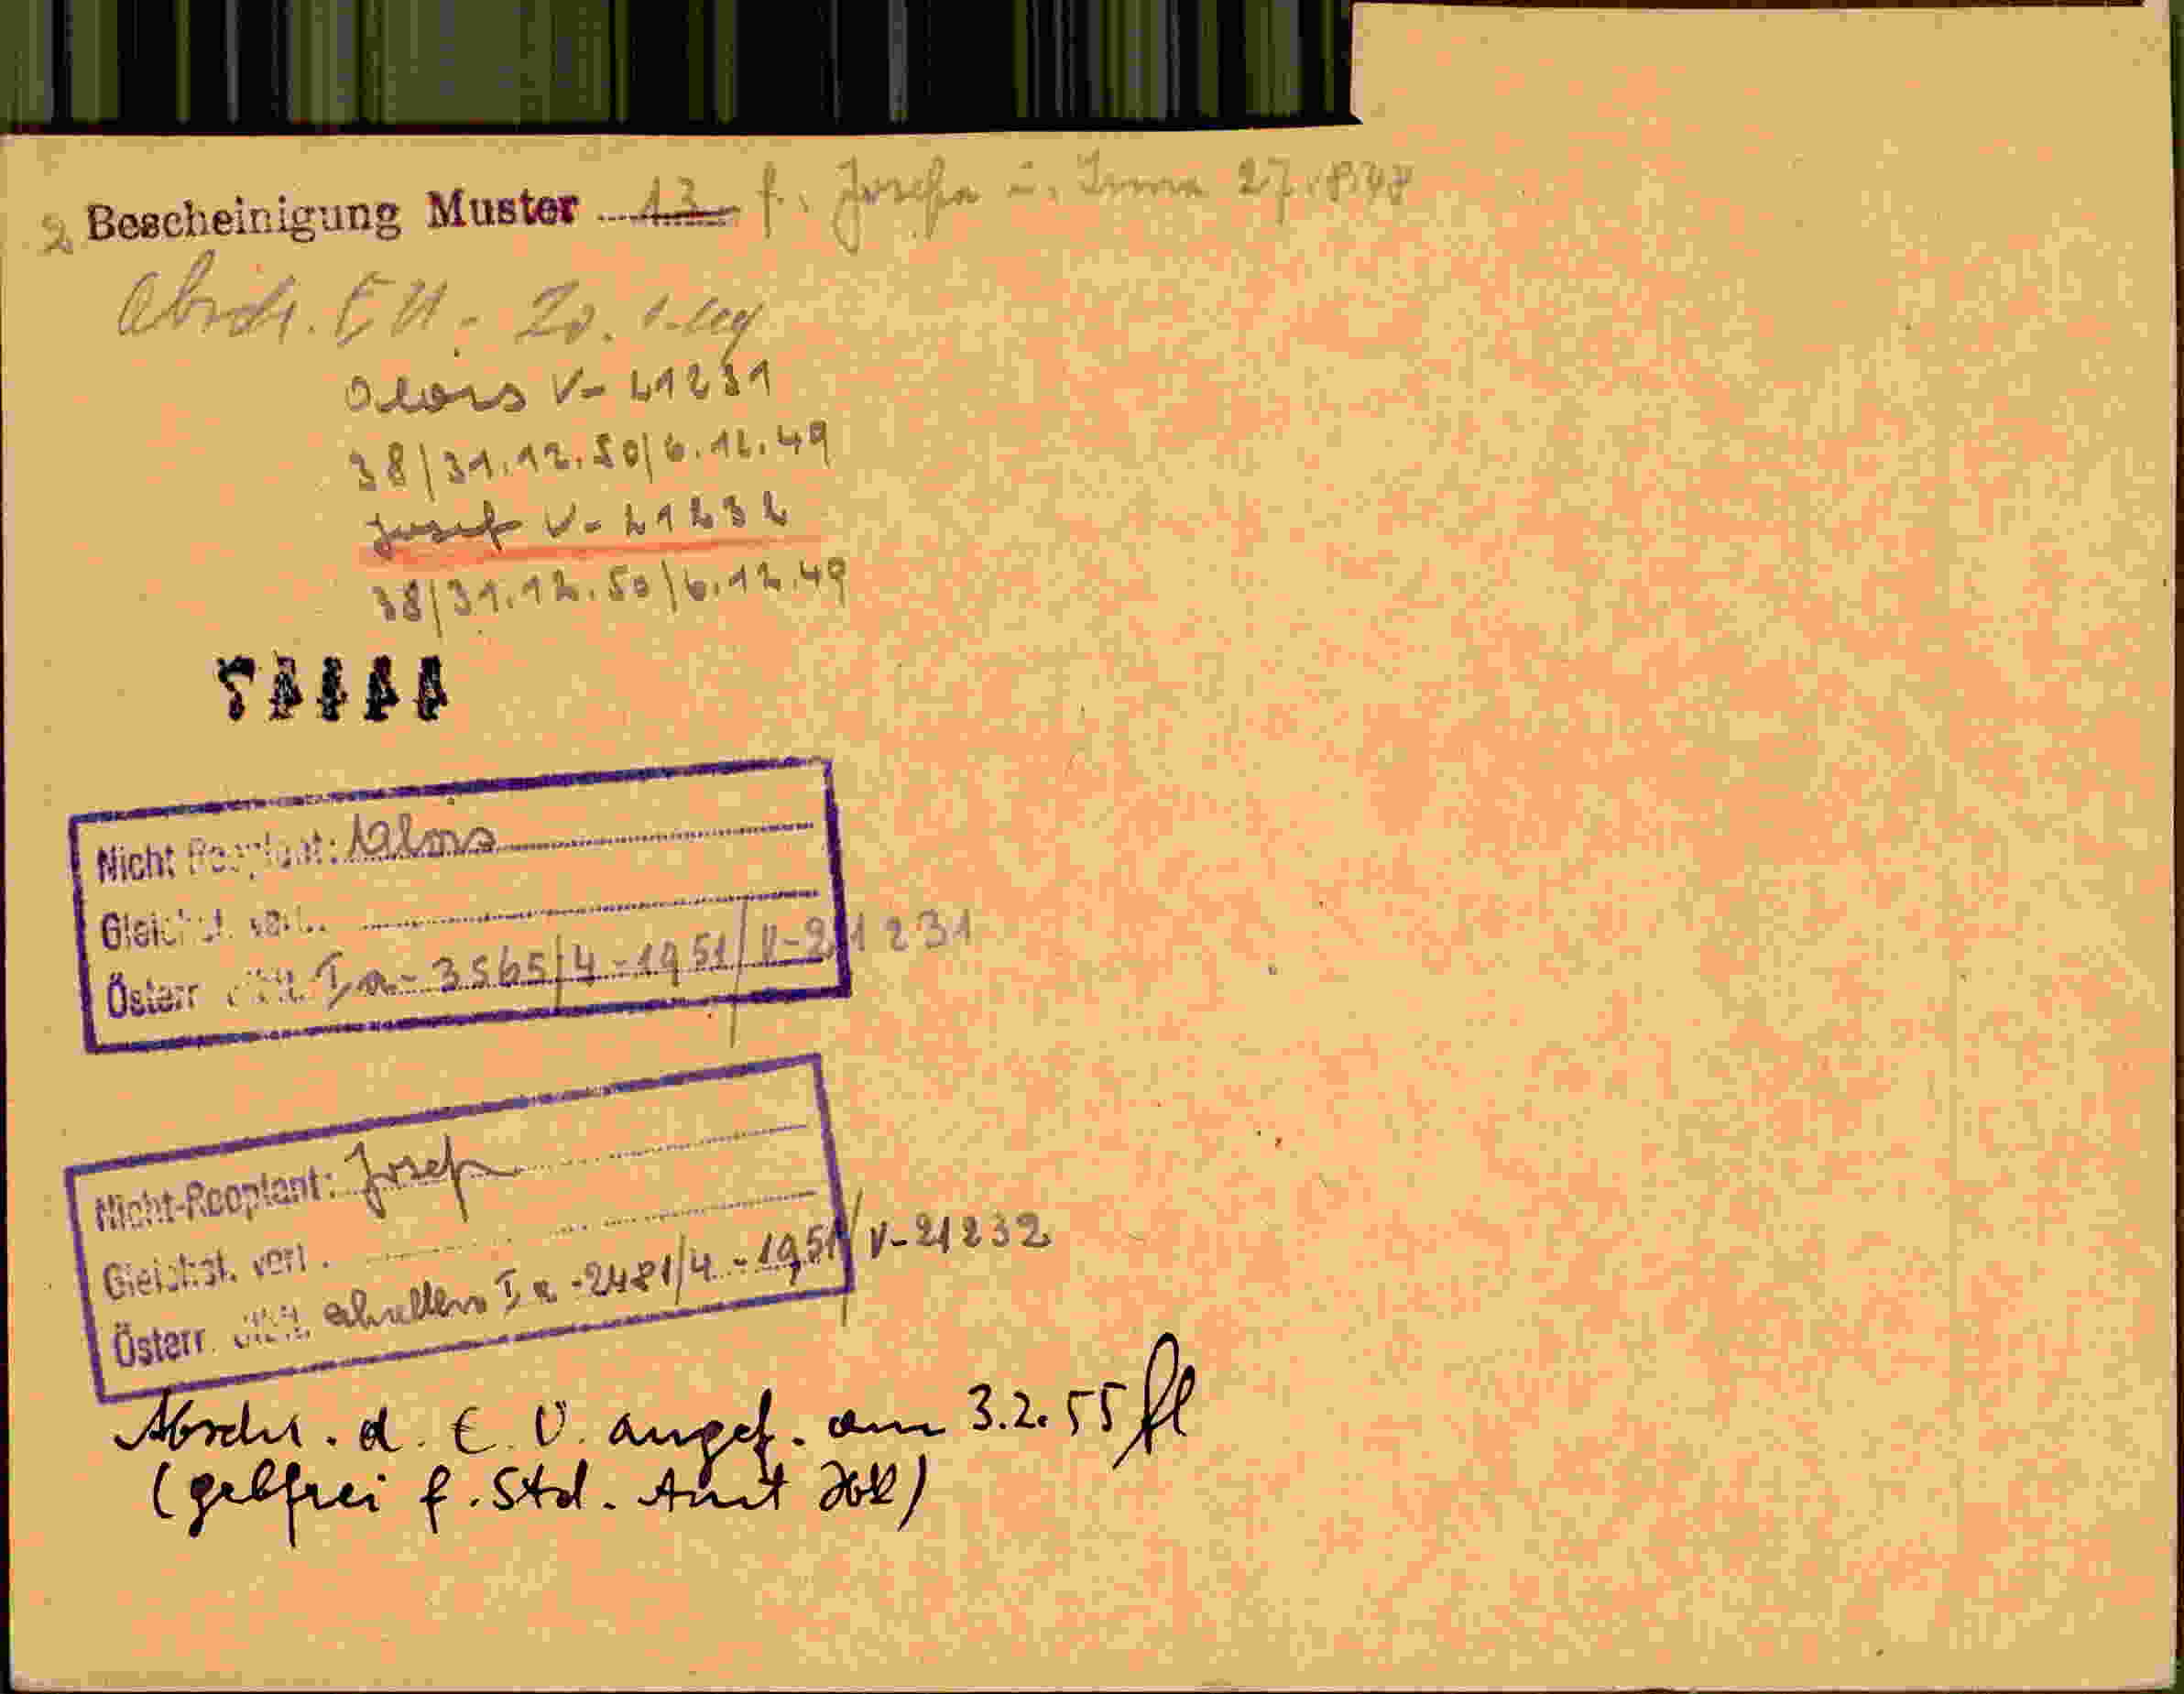 2 Bescheinigung Muster 13 f. Josefa u. Irma 27.8.48
Abschr. EU.
Alois V-21231
38/31.12.50/6.12.49
Josef V-21232
38/31.12.50/6.12.49
Nicht Reoptant: Alois
Gleichst. verl.
Österr. I, a-3565/4-1951/V-21231
Nicht-Reoptant: Josef
Gleichst. verl.
Österr. erhalten I, a-2481/4-1951/V-21232
Abschr. d. E. U. angef. am 3.2.55
(gebfrei f. Std. Amt)